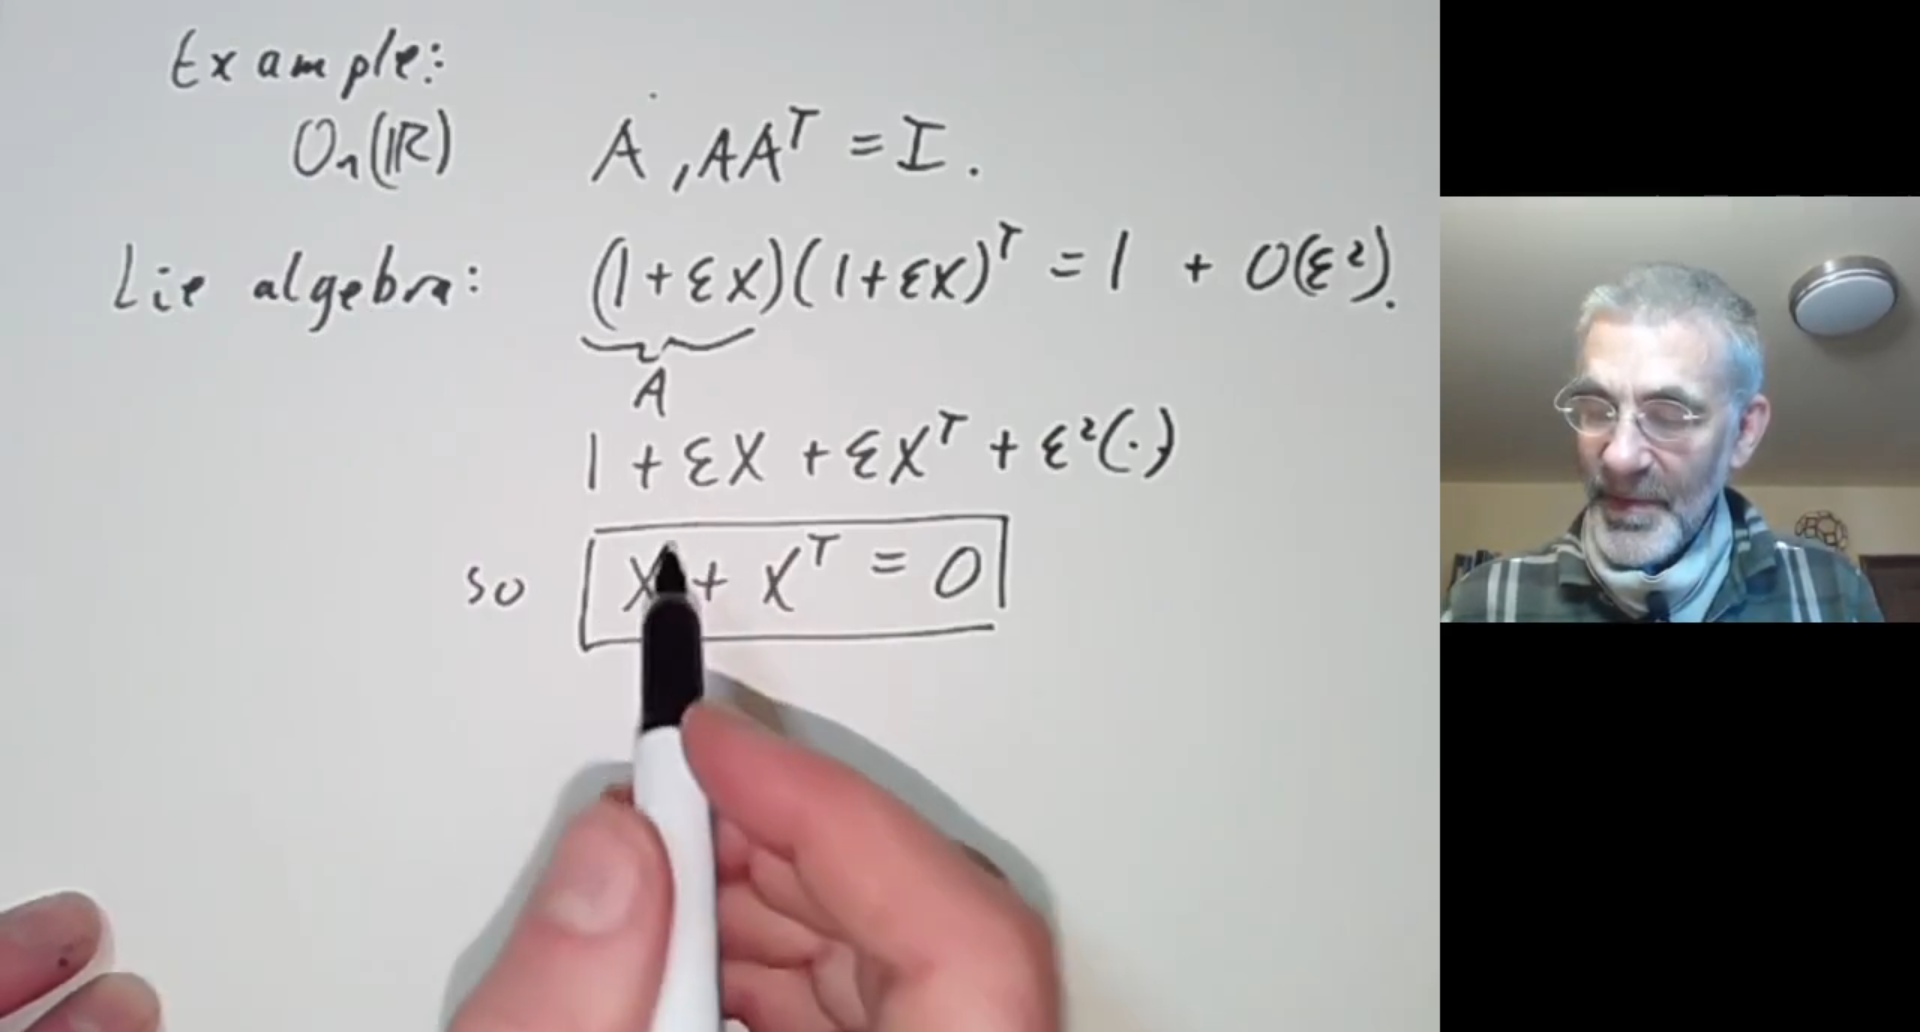 Example:
Oₙ(ℝ) A, AAᵀ = I.
Lie algebra: (1+εX)(1+εX)ᵀ = 1 + O(ε²).
A
1 + εX + εXᵀ + ε²(·)
so X + Xᵀ = 0